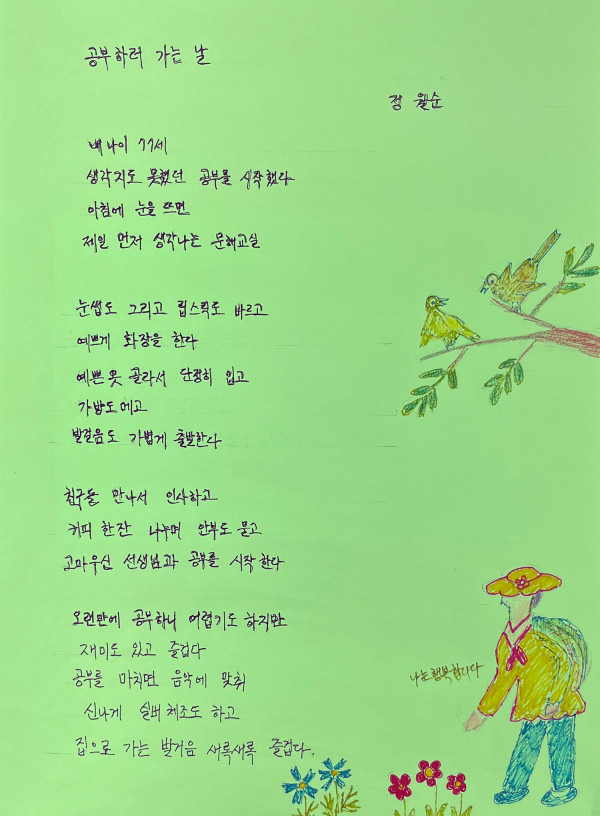 공부하러 가는 날
정 월순
내 나이 77세
생각지도 못했던 공부를 시작했다
아침에 눈을 뜨면
제일 먼저 생각나는 문해교실
눈썹도 그리고 립스틱도 바르고
예쁘게 화장을 한다
예쁜 옷 골라서 단정히 입고
가방도 메고
발걸음도 가볍게 출발한다
친구들 만나서 인사하고
커피 한잔 나누며 안부도 묻고
고마우신 선생님과 공부를 시작한다
오랜만에 공부하니 어렵기도 하지만
재미도 있고 즐겁다
공부를 마치면 음악에 맞춰
신나게 실버체조도 하고
집으로 가는 발거음 새록새록 즐겁다.
나는행복합니다